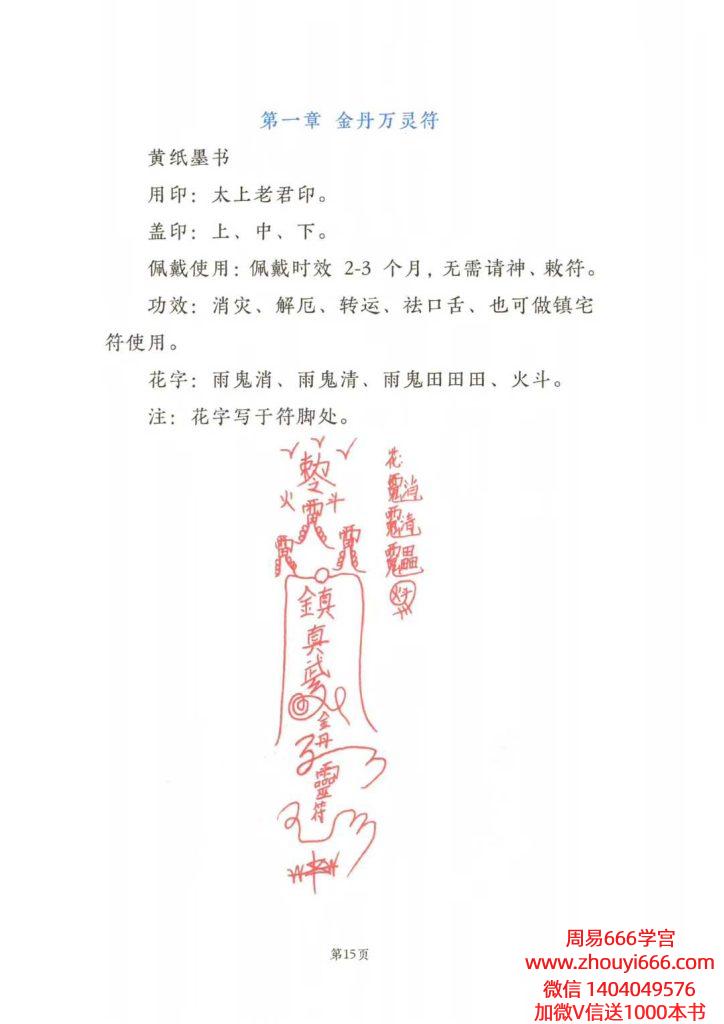 第一章 金丹万灵符
黄纸墨书
用印：太上老君印。
盖印：上、中、下。
佩戴使用：佩戴时效 2-3 个月，无需请神、敕符。
功效：消灾、解厄、转运、祛口舌、也可做镇宅
符使用。
花字：雨鬼消、雨鬼清、雨鬼田田田、火斗。
注：花字写于符脚处。
火 斗
花:
鎮
真
武
金
丹
靈
符
第15页
周易666学宫
www.zhouyi666.com
微信 1404049576
加微V信送1000本书